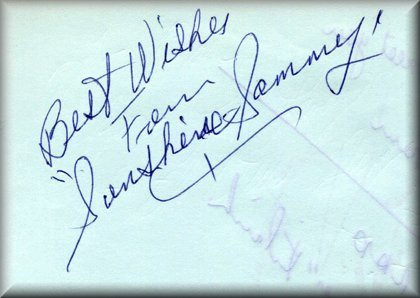 Best Wishes
From
"Sunshine Sammy"